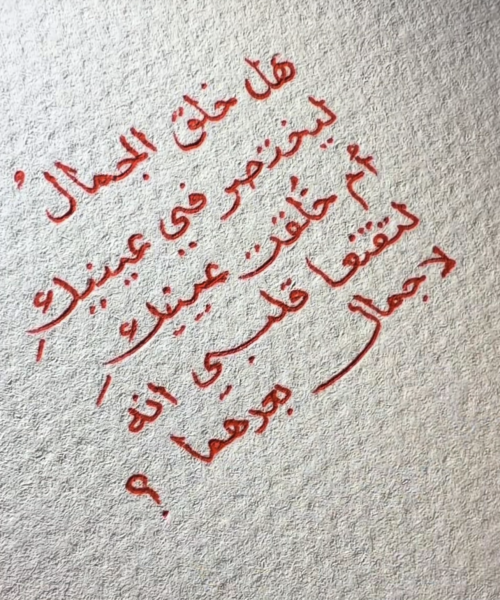 هل خلق الجمالُ
ليختصر في عينيكِ
أم خُلقت عينيكِ
لتقنعا قلبي انه
لا جمال بعدهما ؟